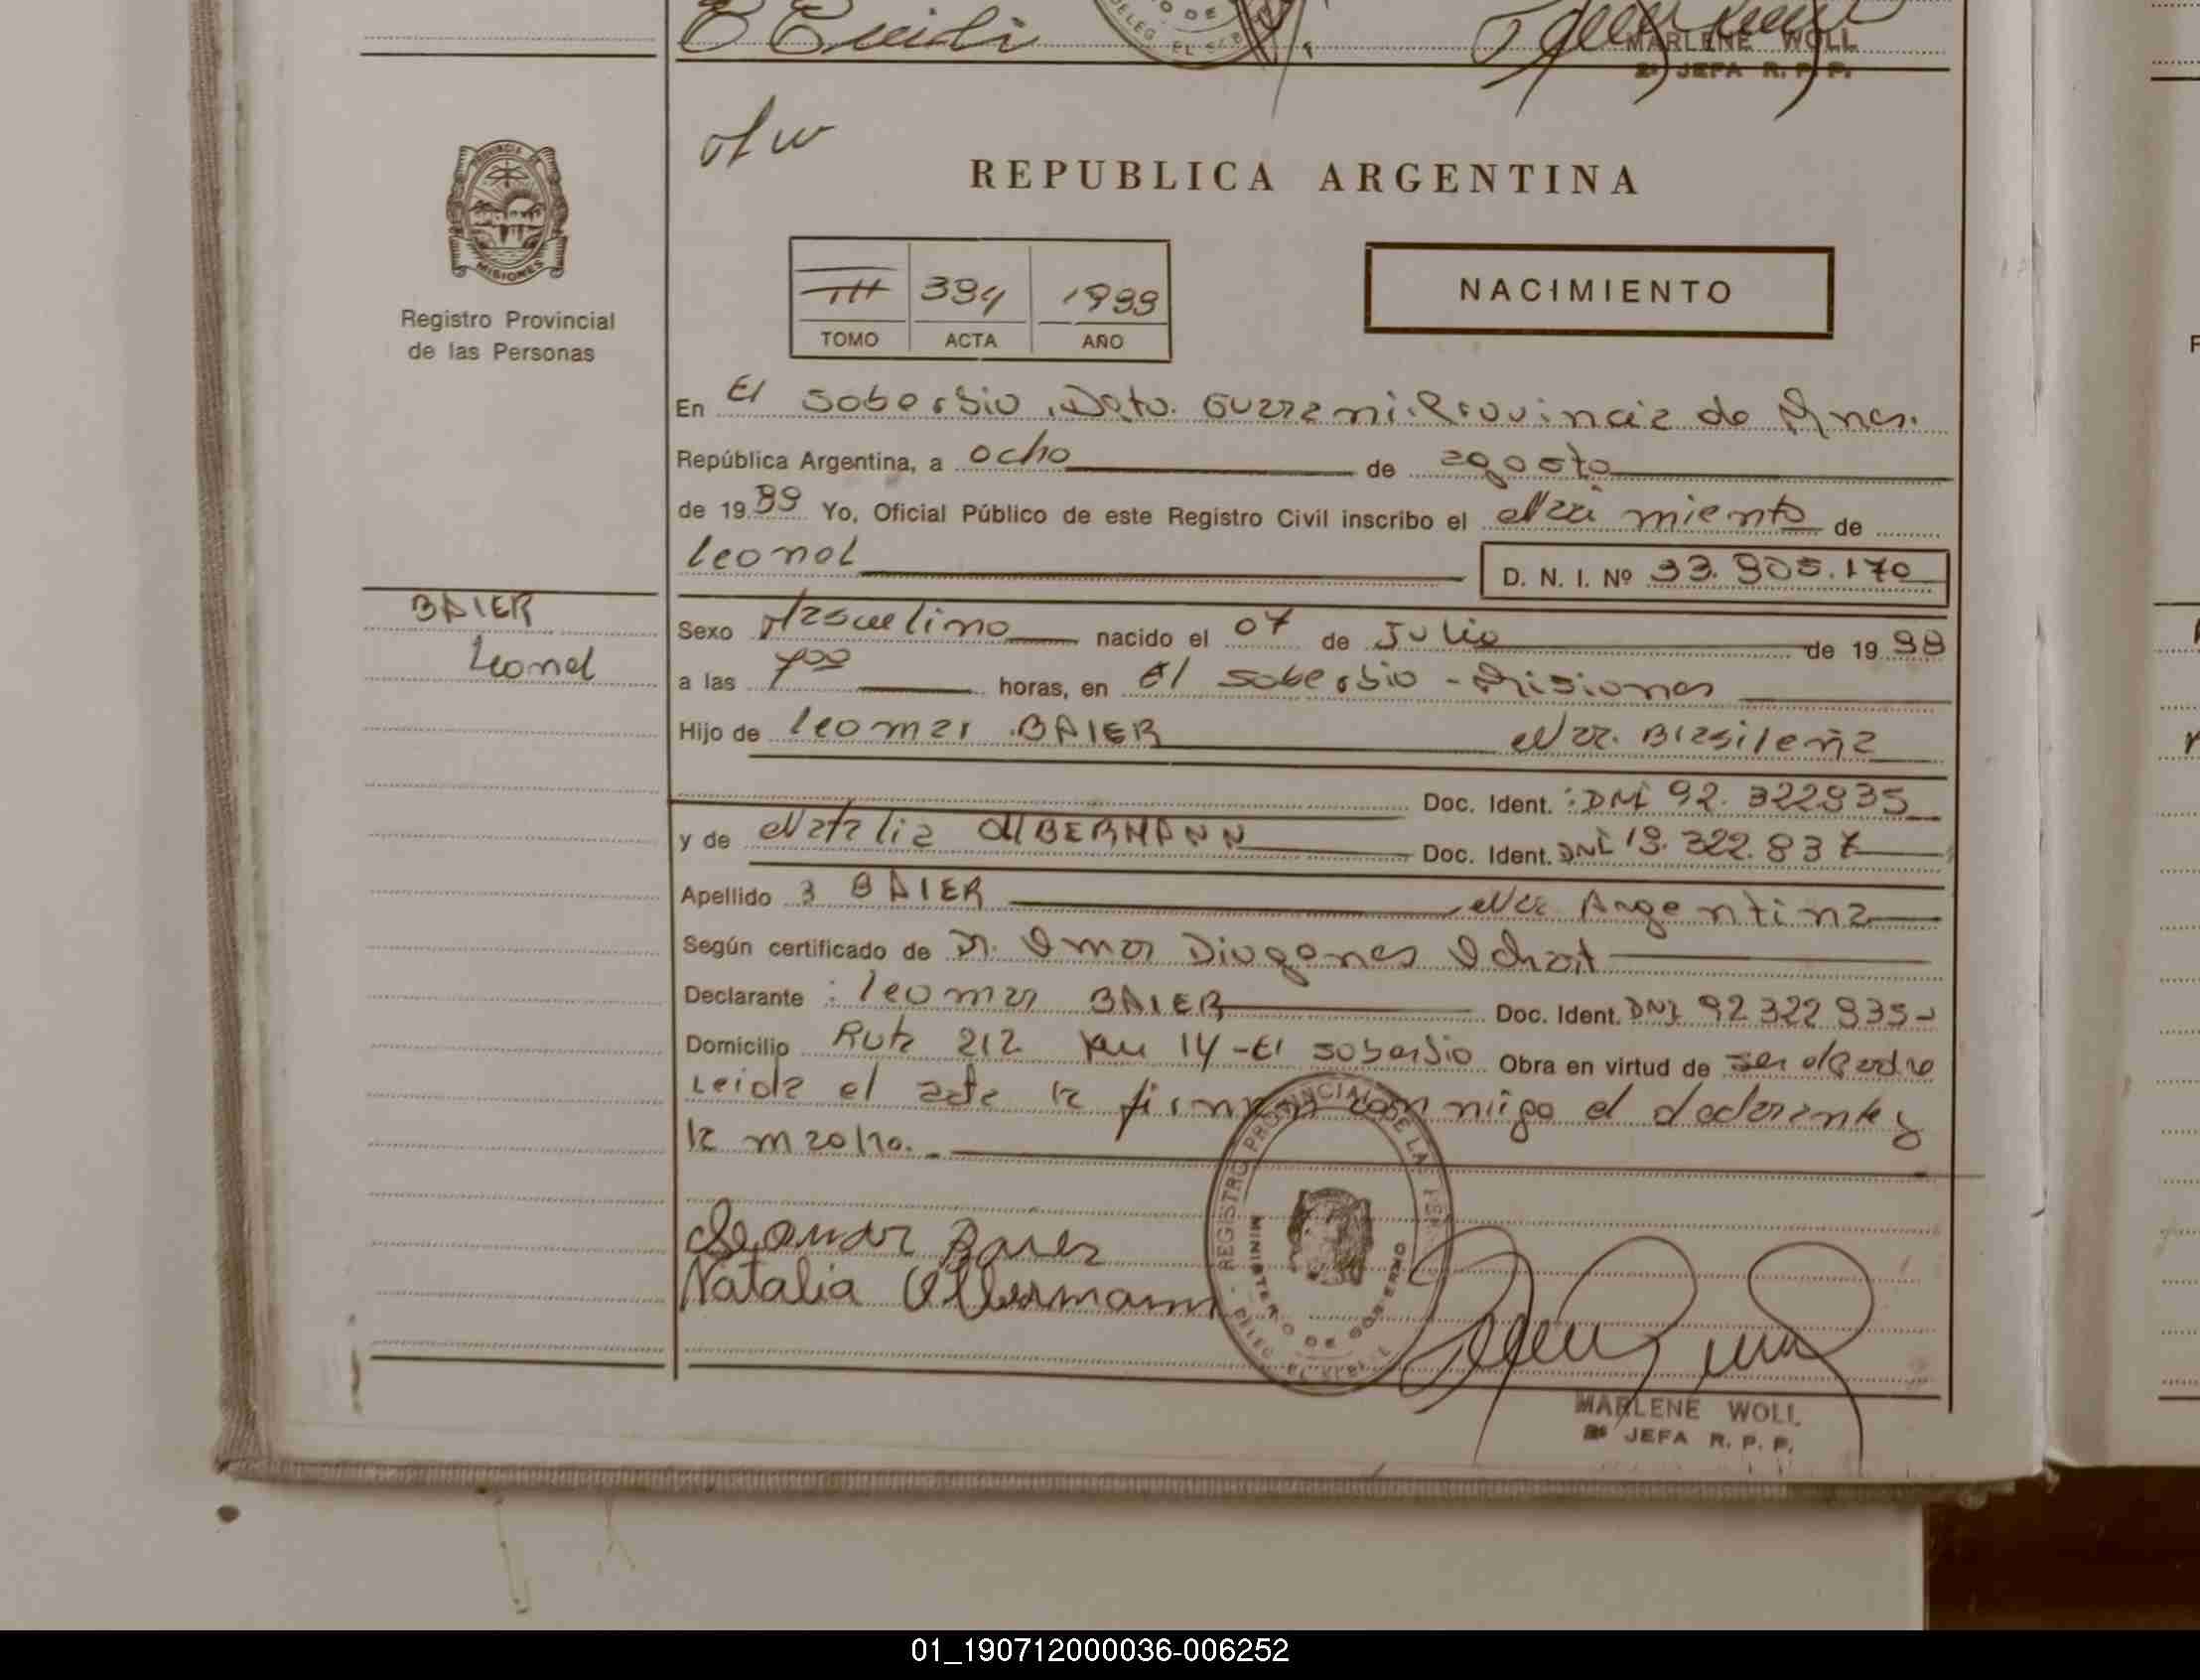 MARLENE WOLL
2ª JEFA R. P. P.
REPUBLICA ARGENTINA
PROVINCIA DE
MISIONES
Registro Provincial
de las Personas
III 394 1999
TOMO ACTA AÑO
NACIMIENTO
En El Soberbio, Dpto. Guarani. Provincia de Mnes.
República Argentina, a ocho de agosto
de 1999 Yo, Oficial Público de este Registro Civil inscribo el Naci miento de
Leonel D. N. I. Nº
BAIER
Leonel
Sexo Masculino nacido el 07 de Julio de 19
a las 7 00 horas, en El Soberbio - Misiones
Hijo de Leomar BAIER Nac. Brasileña
Doc. Ident. : DNI
y de Natalia OLBERMANN Doc. Ident. DNI
Apellido BAIER Nac Argentina
Según certificado de Dr. Omar Diogenes
Declarante : Leomar BAIER Doc. Ident. DNI
Domicilio Ruta 212 Km 14 - El Soberbio Obra en virtud de ser el Padre
Leida el acta la firman conmigo el declarante y
la madre.
Leomar Baier
Natalia Olbermann
REGISTRO PROVINCIAL DE LAS
MINISTERIO DE GOBIERNO
MARLENE WOLL
2ª JEFA R. P. P.
01_190712000036-006252